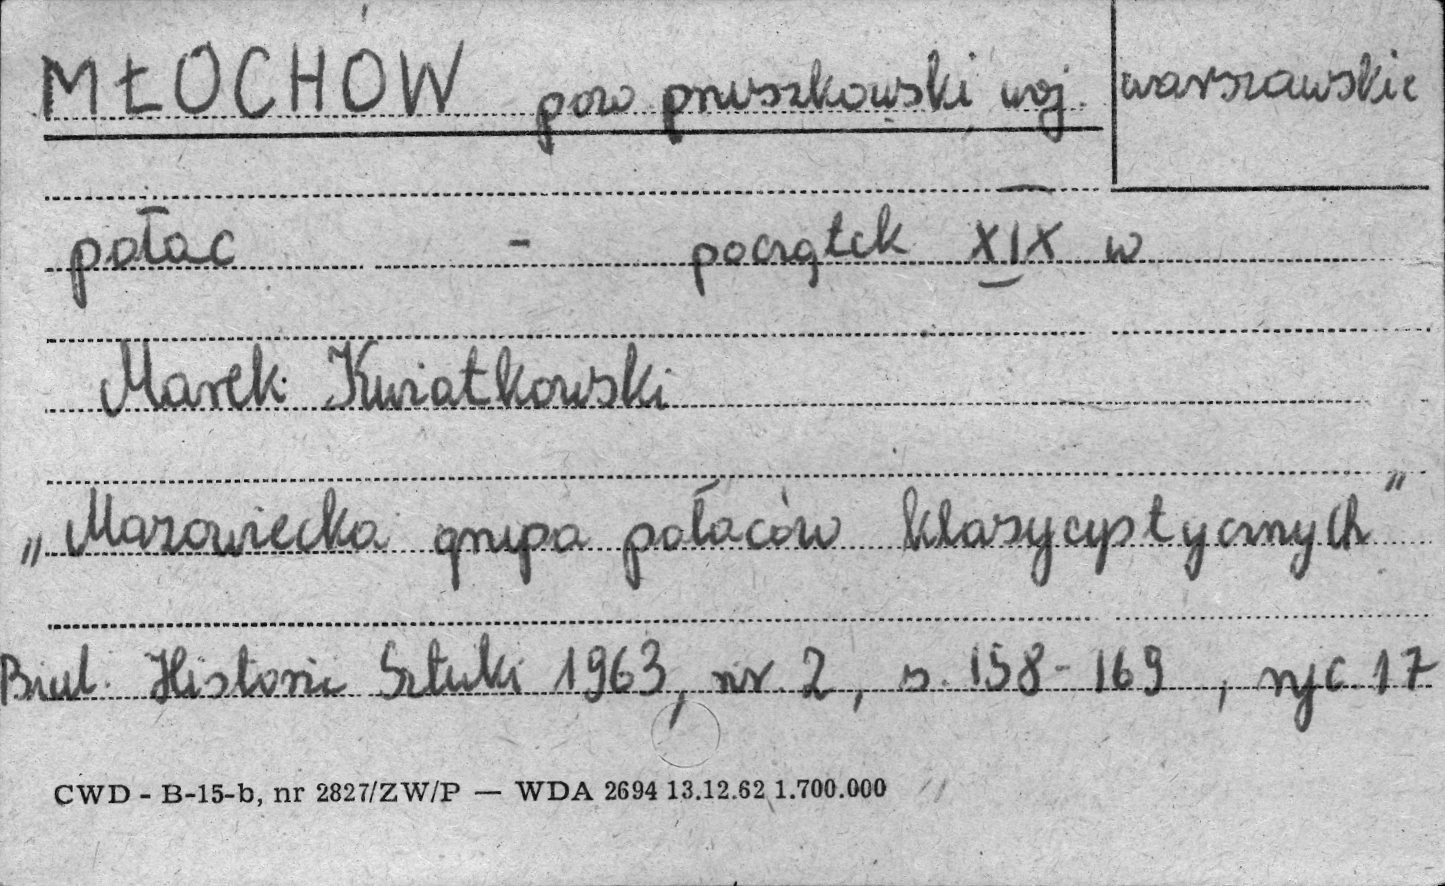 MŁOCHOW pow pruszkowski woj. warszawskie
pałac - początek XIX w
Marek Kwiatkowski
„Mazowiecka grupa pałaców klasycystycznych"
Biul. Historii Sztuki 1963, nr. 2, s. 158-169, ryc. 17
CWD - B-15-b, nr 2827/ZW/P — WDA 2694 13.12.62 1.700.000